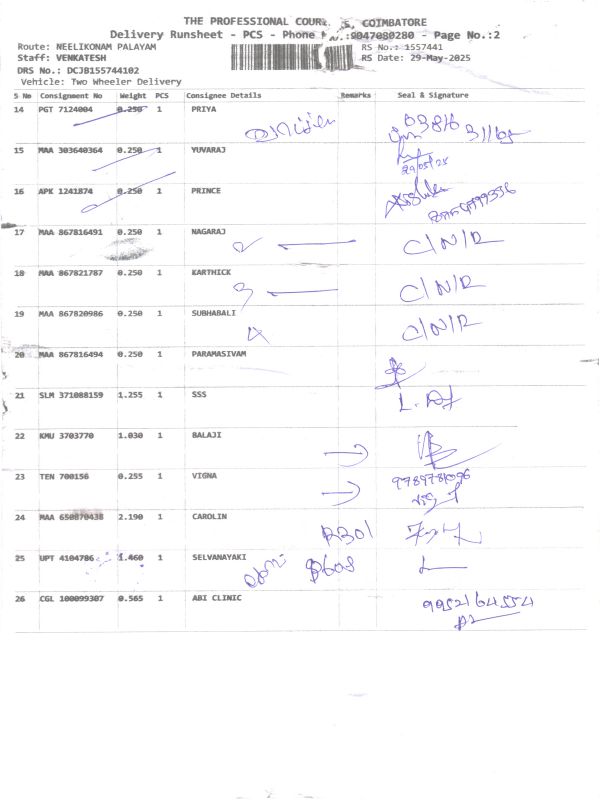 THE PROFESSIONAL COUR S, COIMBATORE
Delivery Runsheet - PCS - Phone No.:9047080280 - Page No.:2
Route: NEELIKONAM PALAYAM RS No.: 1557441
Staff: VENKATESH RS Date: 29-May-2025
DRS No.: DCJB155744102
Vehicle: Two Wheeler Delivery
S No Consignment No Weight PCS Consignee Details Remarks Seal & Signature
14 PGT 7124004 0.250 1 PRIYA
15 MAA 303640364 0.250 1 YUVARAJ
29/05/25
16 APK 1241874 0.250 1 PRINCE
17 MAA 867816491 0.250 1 NAGARAJ
C/N/R
18 MAA 867821787 0.250 1 KARTHICK
C/N/R
19 MAA 867820986 0.250 1 SUBHABALI
C/N/R
20 MAA 867816494 0.250 1 PARAMASIVAM
21 SLM 371088159 1.255 1 SSS
22 KMU 3703770 1.030 1 BALAJI
23 TEN 700156 0.255 1 VIGNA
24 MAA 650870438 2.190 1 CAROLIN
25 UPT 4104786 1.460 1 SELVANAYAKI
26 CGL 100099307 0.565 1 ABI CLINIC
9952164554